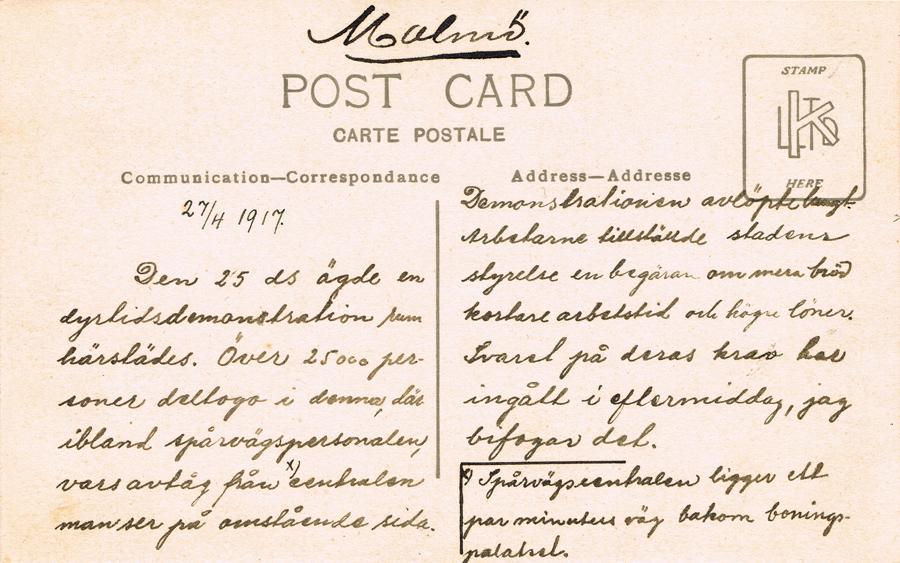 Malmö.
POST CARD
CARTE POSTALE
STAMP
HERE
Communication—Correspondance
Address—Addresse
27/4 1917.
Den 25 ds ägde en
dyrtidsdemonstration rum
härstädes. Över 25000 per-
soner deltogo i denna, där
ibland spårvägspersonalen,
vars avtåg från x) centralen
man ser på omstående sida.
Demonstrationen avlöpte lugnt.
Arbetarne tillställde stadens
styrelse en begäran om mera bröd
kortare arbetstid och högre löner.
Svaret på deras krav har
ingått i eftermiddag, jag
bifogar det.
x) Spårvägscentralen ligger ett
par minuters väg bakom bonings-
palatset.